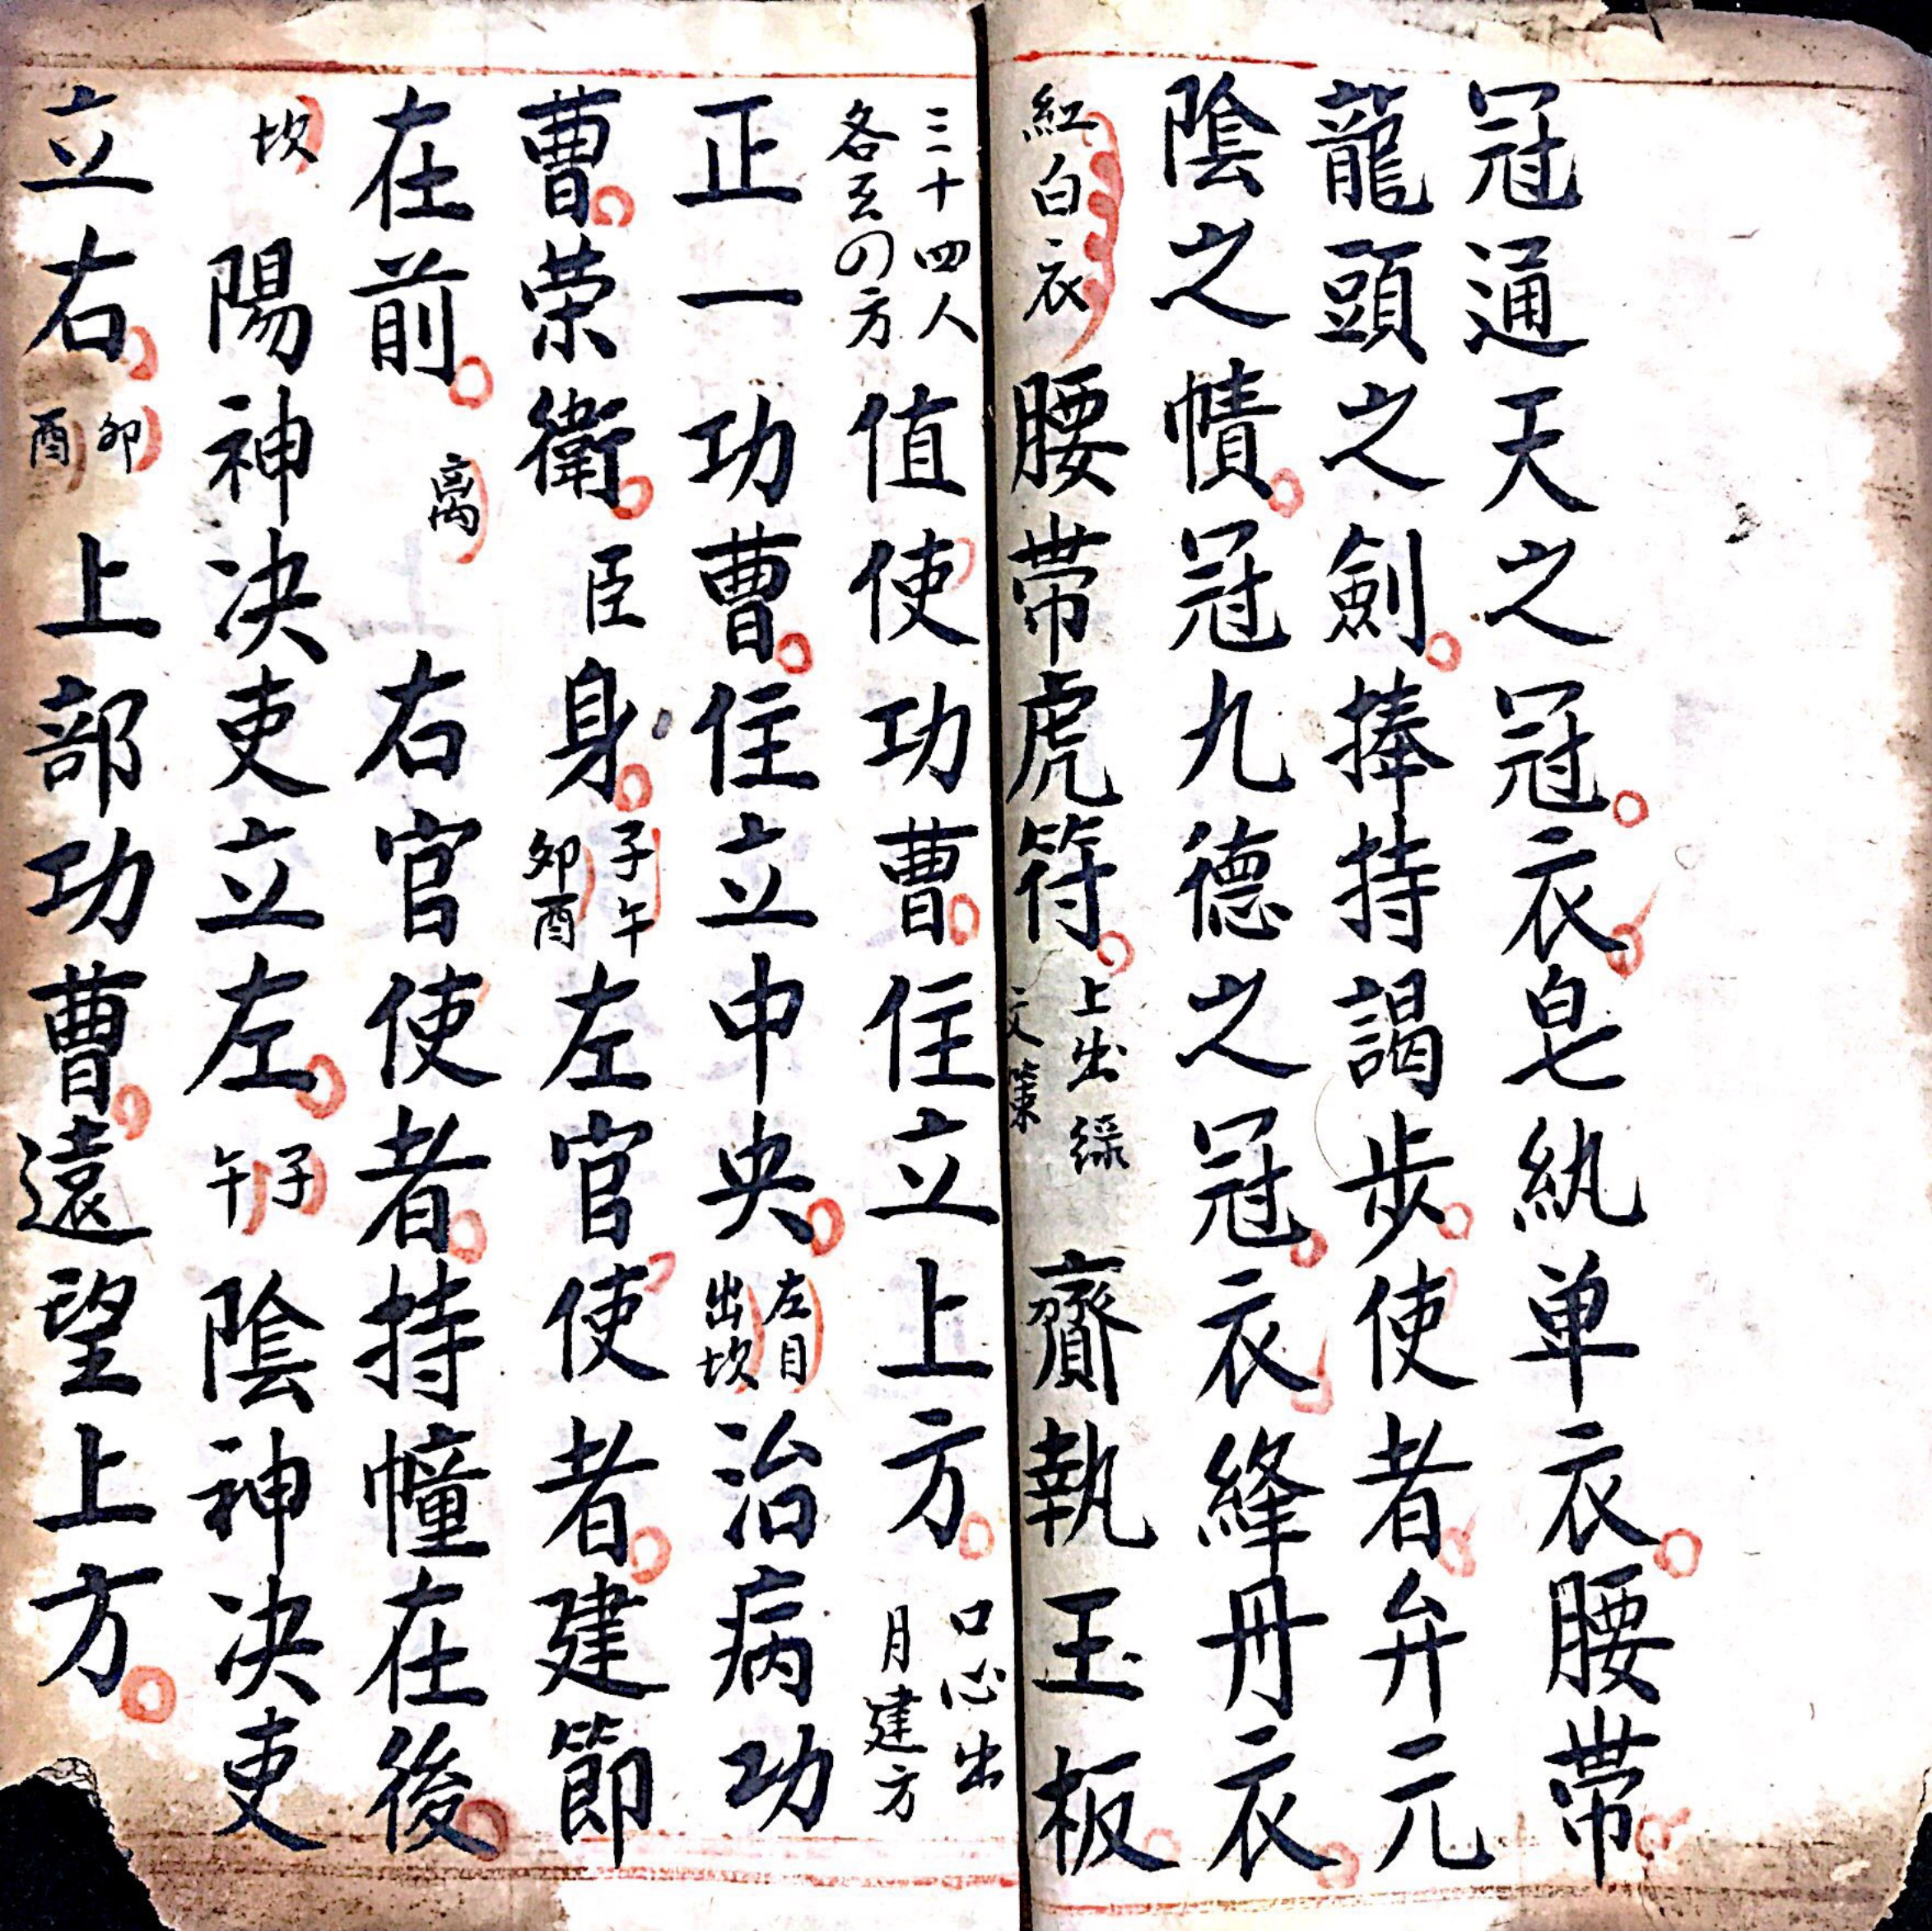 冠通天之冠衣皂紈单衣腰带
龍頭之劍捧持謁步使者弁元
陰之幘冠九德之冠衣絳丹衣
紅白衣腰带虎符上出綵文策齎執玉板
三十四人各云四方值使功曹住立上方口心出月建方
正一功曹住立中央左目出坎治病功
曹荣衛臣身子午卯酉左官使者建節
在前离右官使者持幢在後
坎陽神决吏立左子午陰神决吏
立右卯酉上部功曹遠望上方